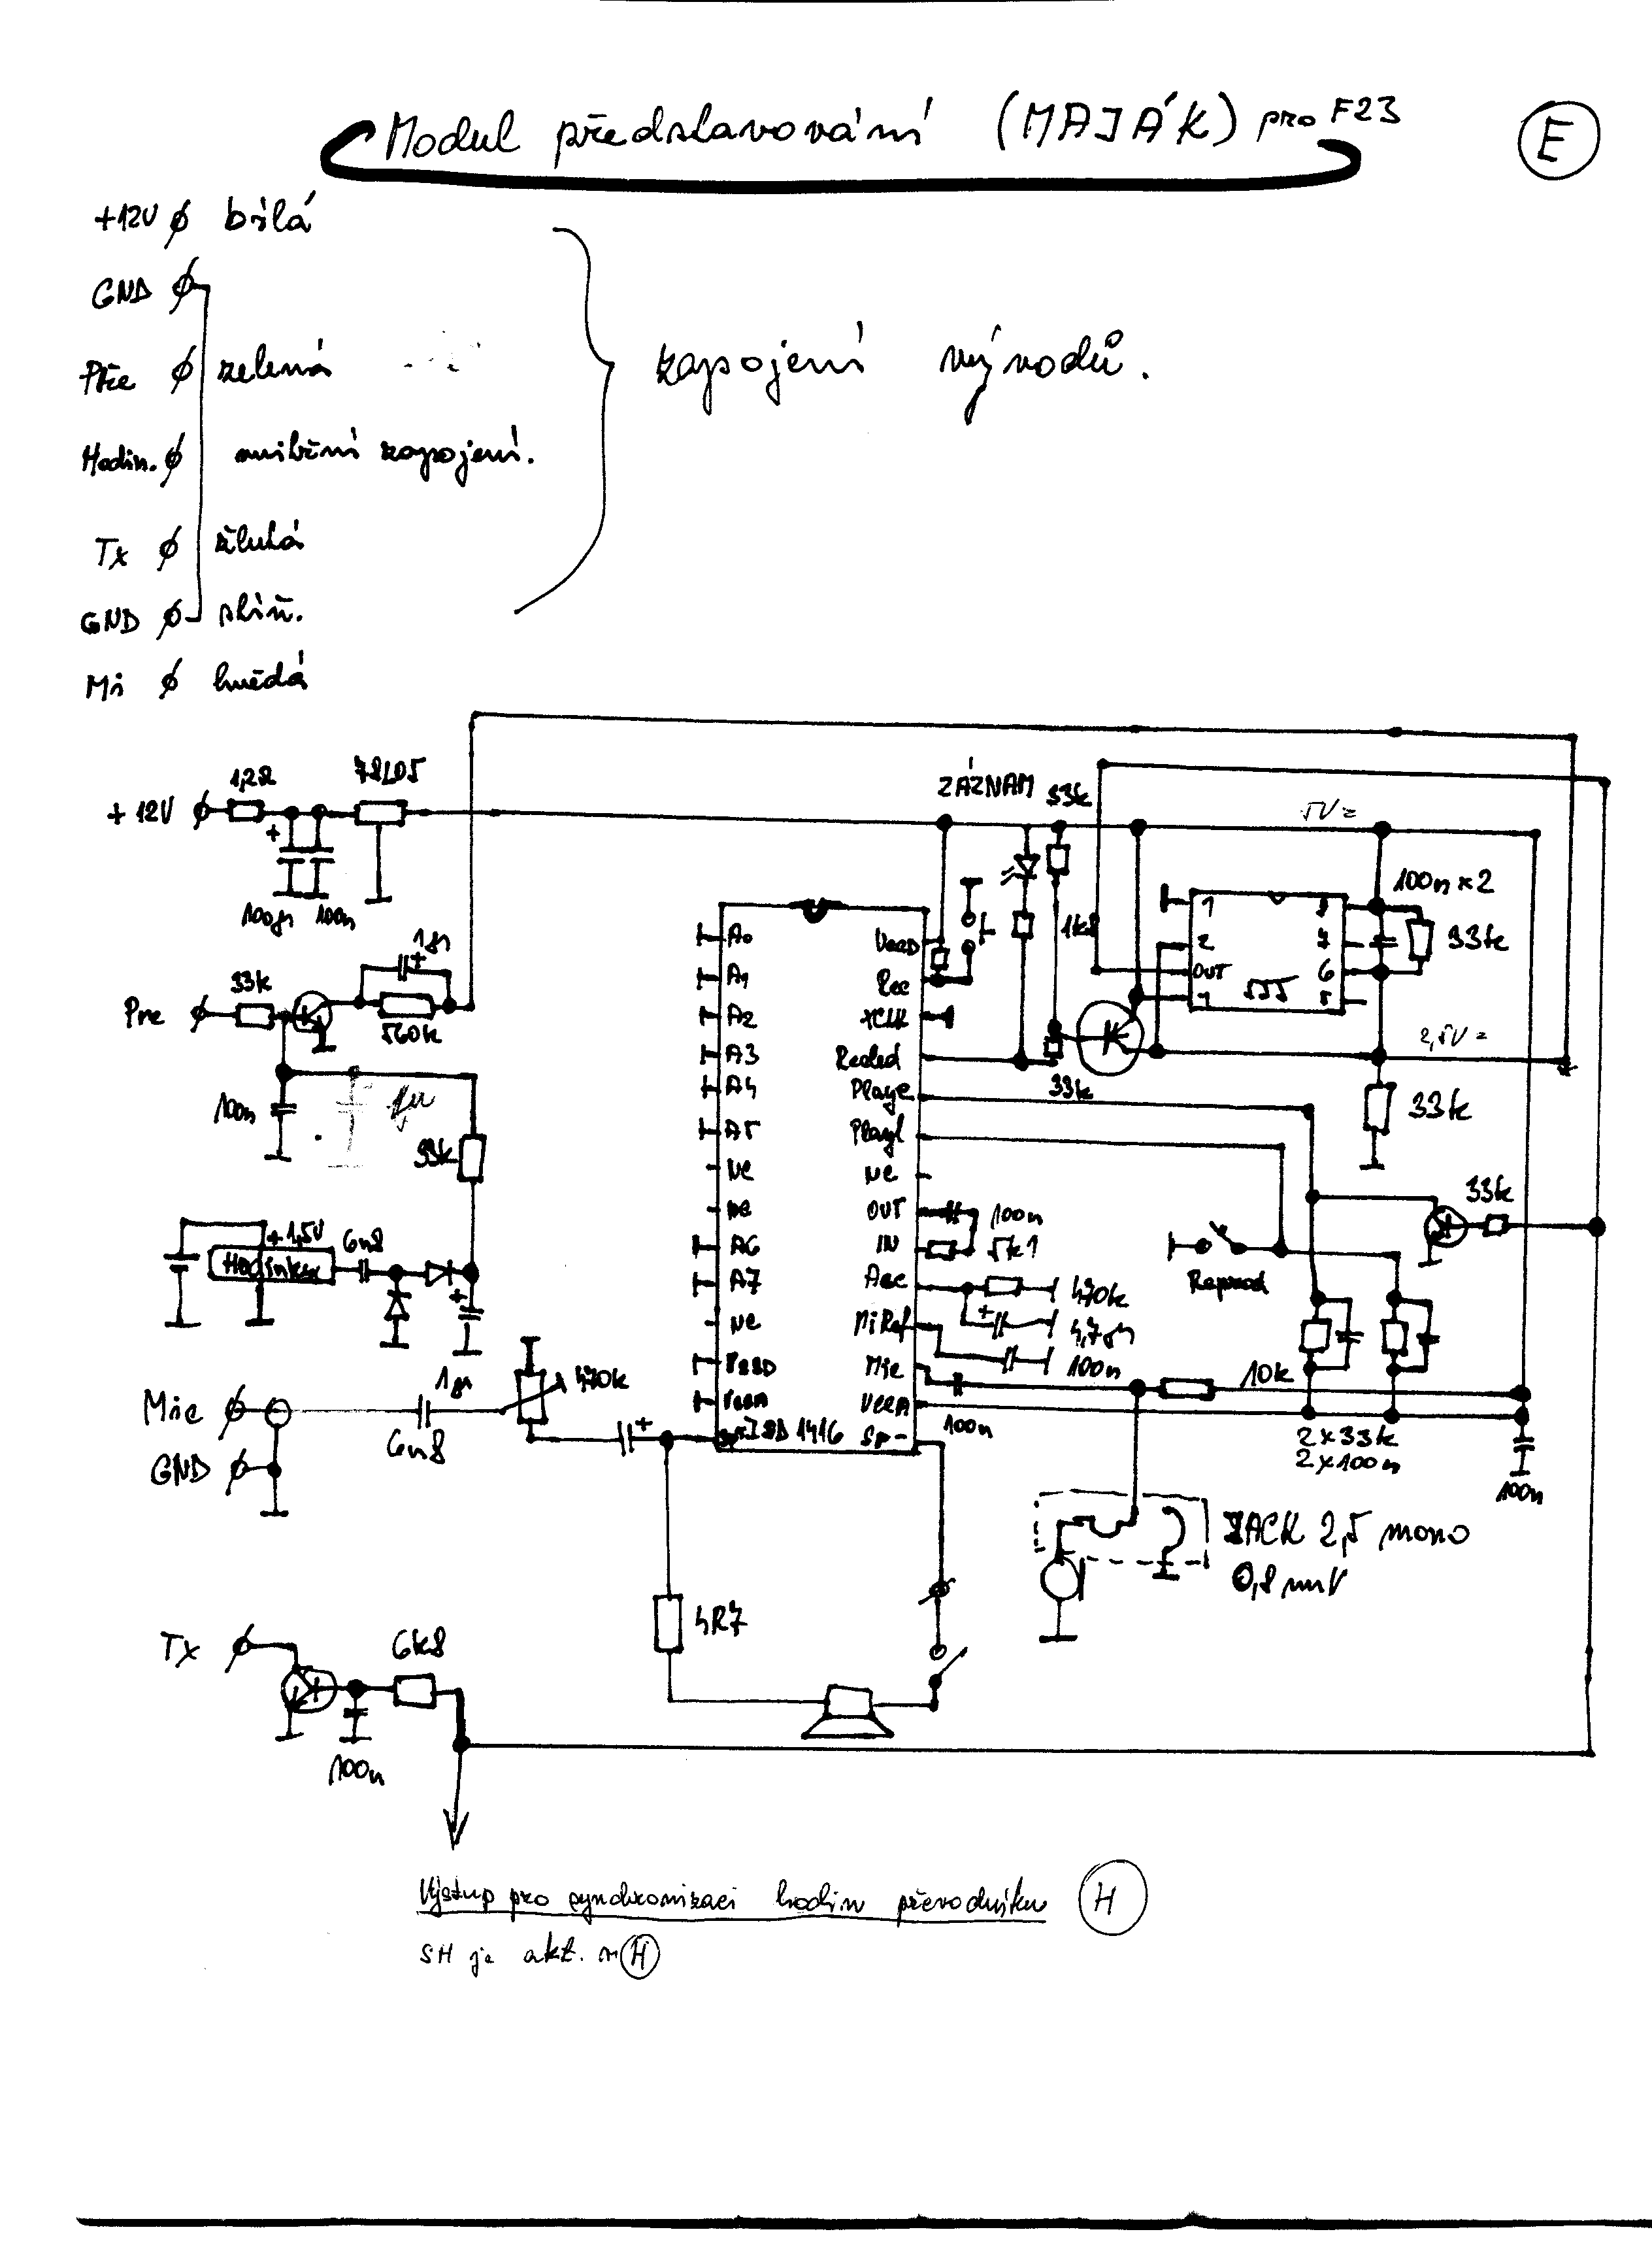 Modul představování (MAJÁK) pro F23
E
+12V bílá
GND
Pře zelená
zapojení vývodů.
Hodin. vnitřní zapojení.
Tx žlutá
GND stín.
Mi hnědá
+12V
1,2Ω
78L05
100µ
100n
ZÁZNAM
33k
5V =
100n x 2
33k
1k8
1
2
OUT
4
8
7
6
5
555
2,5V =
33k
33k
Pře
33k
1µ
560k
100n
1µ
33k
+ 1,5V
Hodinky
6n8
1µ
A0
A1
A2
A3
A4
A5
NC
NC
A6
A7
NC
VSSD
VSSA
ISD 1416
VCCD
Rec
XCLK
Recled
Playe
Playl
NC
OUT
IN
AGC
MiRef
Mic
VCCA
Sp-
100n
5k1
470k
4,7µ
100n
100n
33k
10k
2x33k
2x100n
100n
Mic
GND
6n8
470k
JACK 2,5 mono
0,8 mV
4R7
Tx
6k8
100n
Výstup pro synchronizaci hodin převodníku H
SH je akt. v H